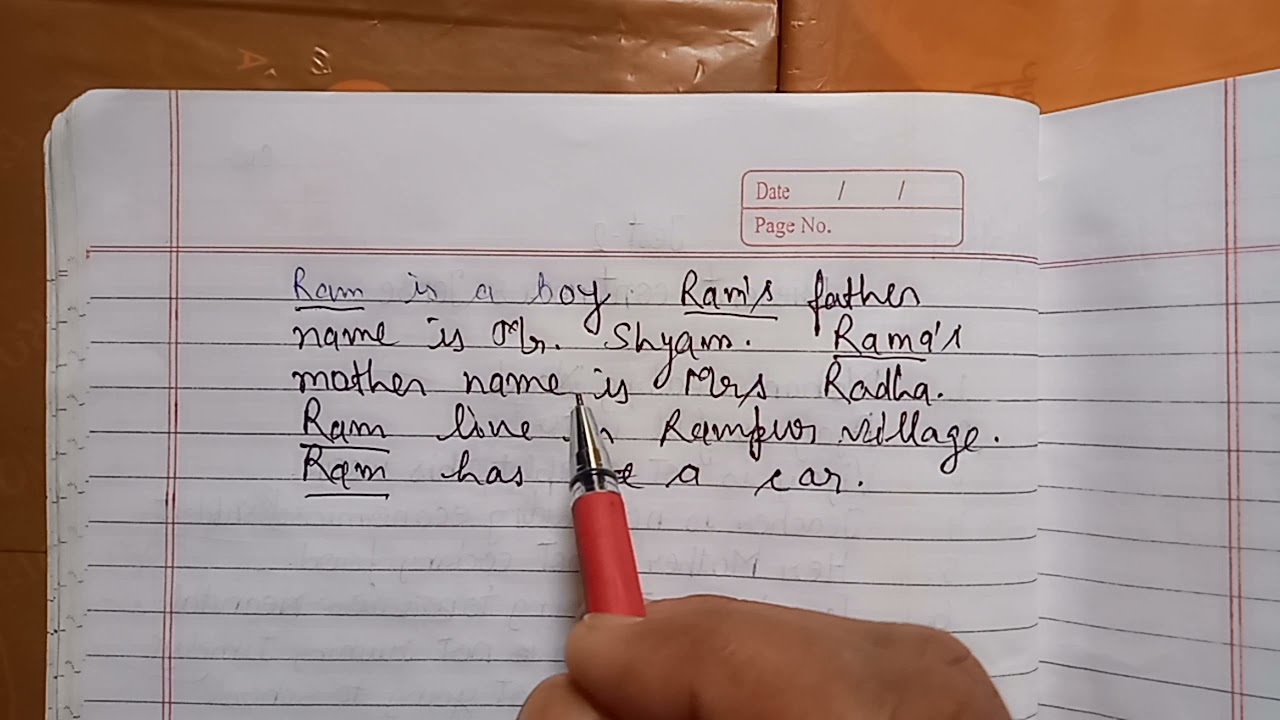 Date / /
Page No.
Ram is a boy. Ram's father
name is Mr. Shyam. Rama's
mother name is Mrs Radha.
Ram live in Rampur village.
Ram has a car.